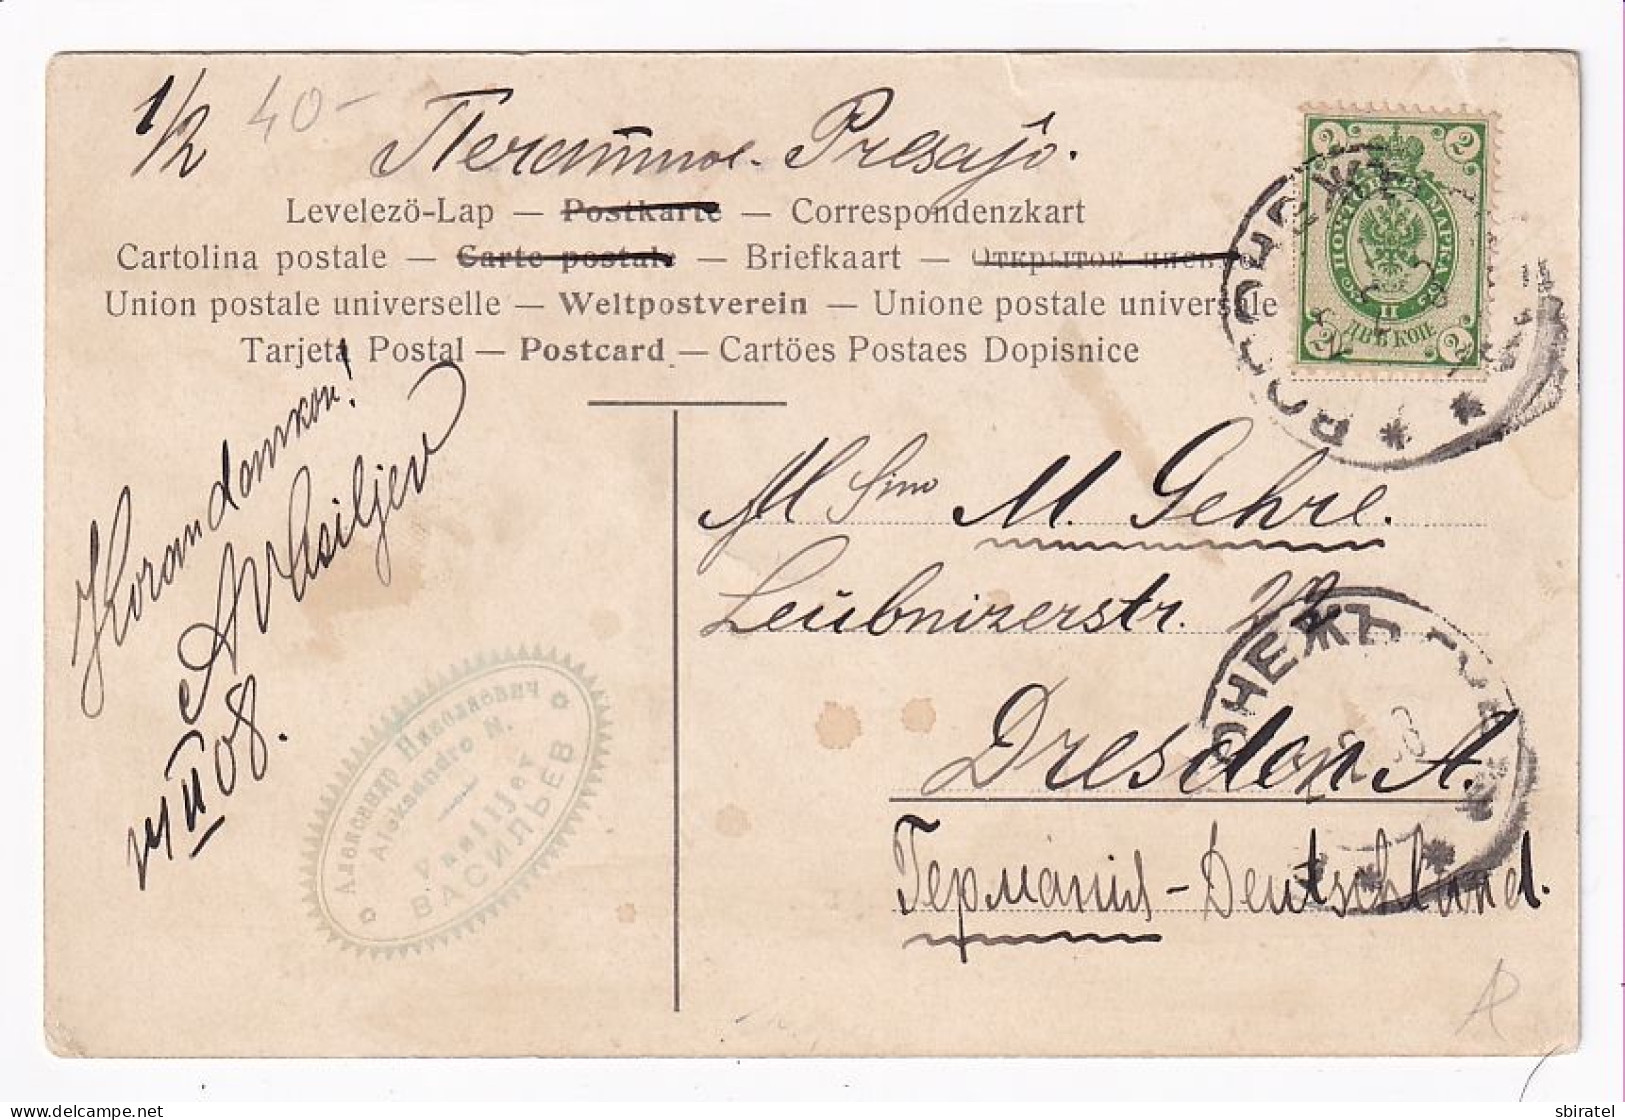 1/2 40-
Печатное - Presaĵo.
Levelezö-Lap — Postkarte — Correspondenzkart
Cartolina postale — Carte postale — Briefkaart —
Union postale universelle — Weltpostverein — Unione postale universale
Tarjeta Postal — Postcard — Cartöes Postaes Dopisnice
2 2
ПОЧТОВАЯ МАРКА
ДВѢ КОП.
2 2
ВОРОНЕЖЪ
Koran dankon!
A Vasiljev
08.
M. Gehre.
Leubnizerstr. 22
Dresden A.
Германия - Deutschland.
ОНЕЖЪ
Александр Николаевич
Aleksandro N.
Vasiljev
ВАСИЛЬЕВ
sbiratel